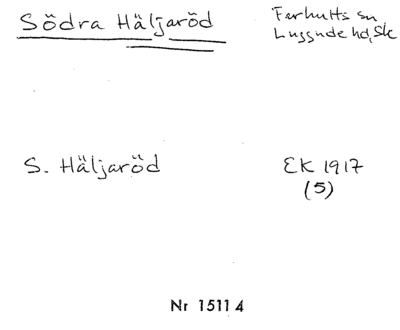 Södra Häljaröd
Farhults sn
Luggude hd, Sk
S. Häljaröd
EK 1917
(5)
Nr 15114